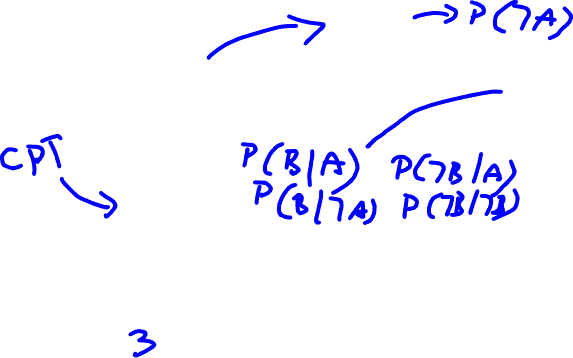 → P(¬A)
CPT
P(B|A) P(¬B|A)
P(B|¬A) P(¬B|¬B)
3